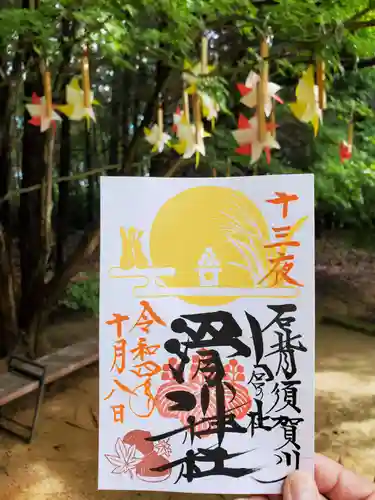 十三夜
石背須賀川
滑川神社
令和四年
十月八日